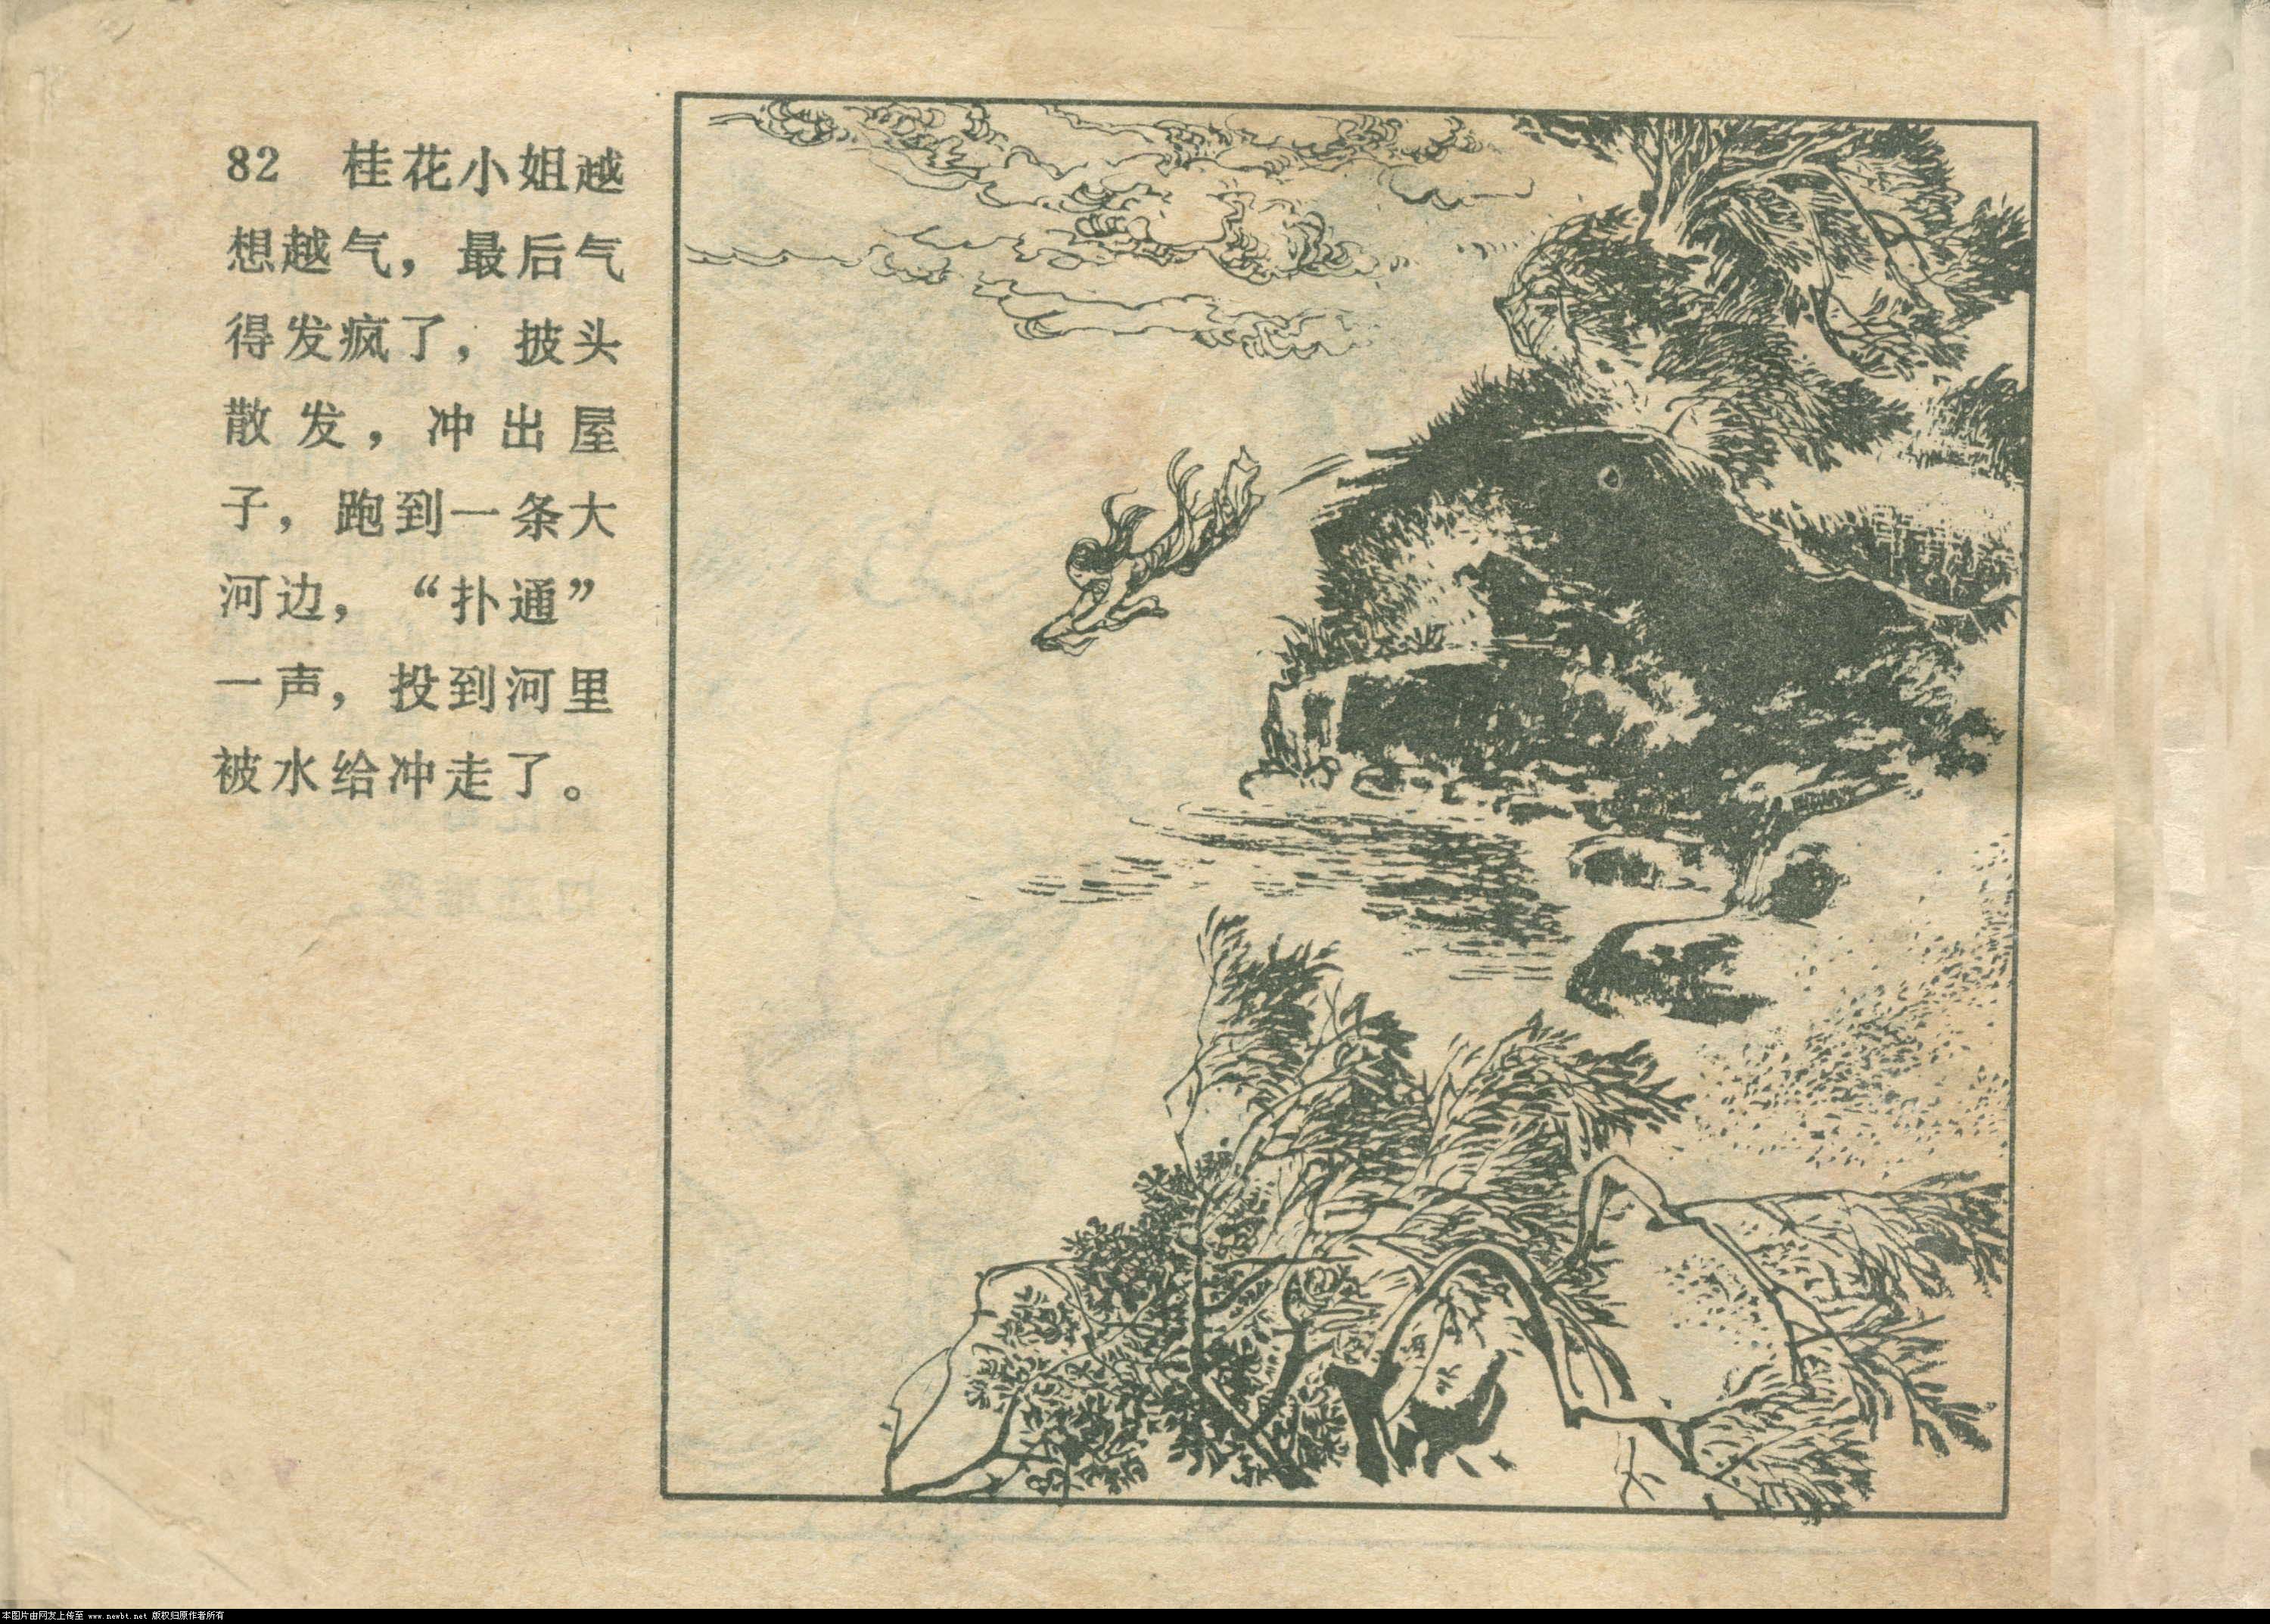 82 桂花小姐越
想越气，最后气
得发疯了，披头
散发，冲出屋
子，跑到一条大
河边，“扑通”
一声，投到河里
被水给冲走了。
本图片由网友上传至 www.newbt.net 版权归原作者所有